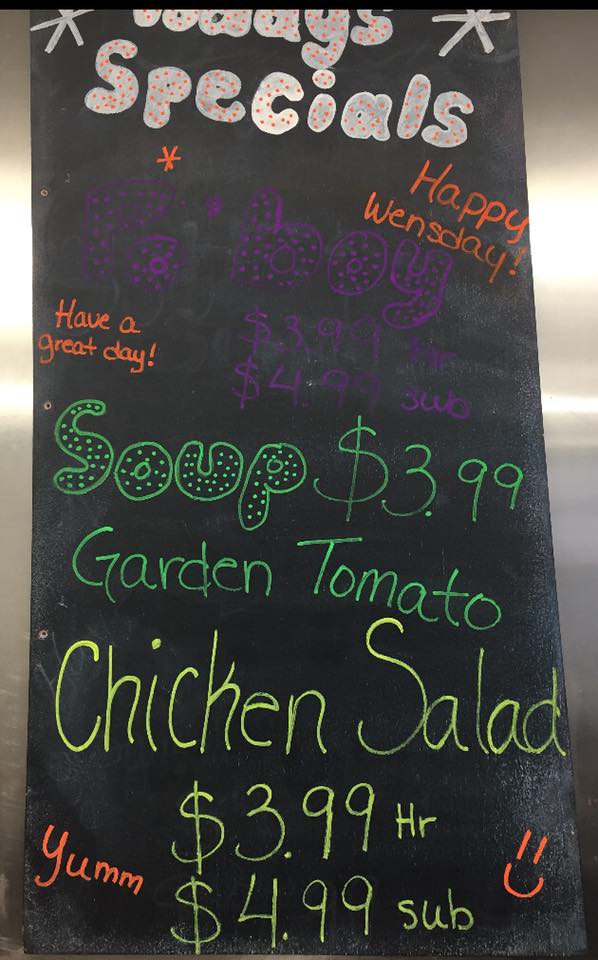 Todays
Specials
Happy
Wensday!
Po' boy
Have a
great day!
$3.99 Hr
$4.99 sub
Soup $3.99
Garden Tomato
Chicken Salad
$3.99 Hr
Yumm
$4.99 sub